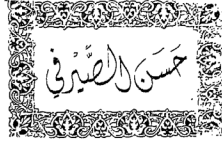 حَسَن الصَّيْرَفي